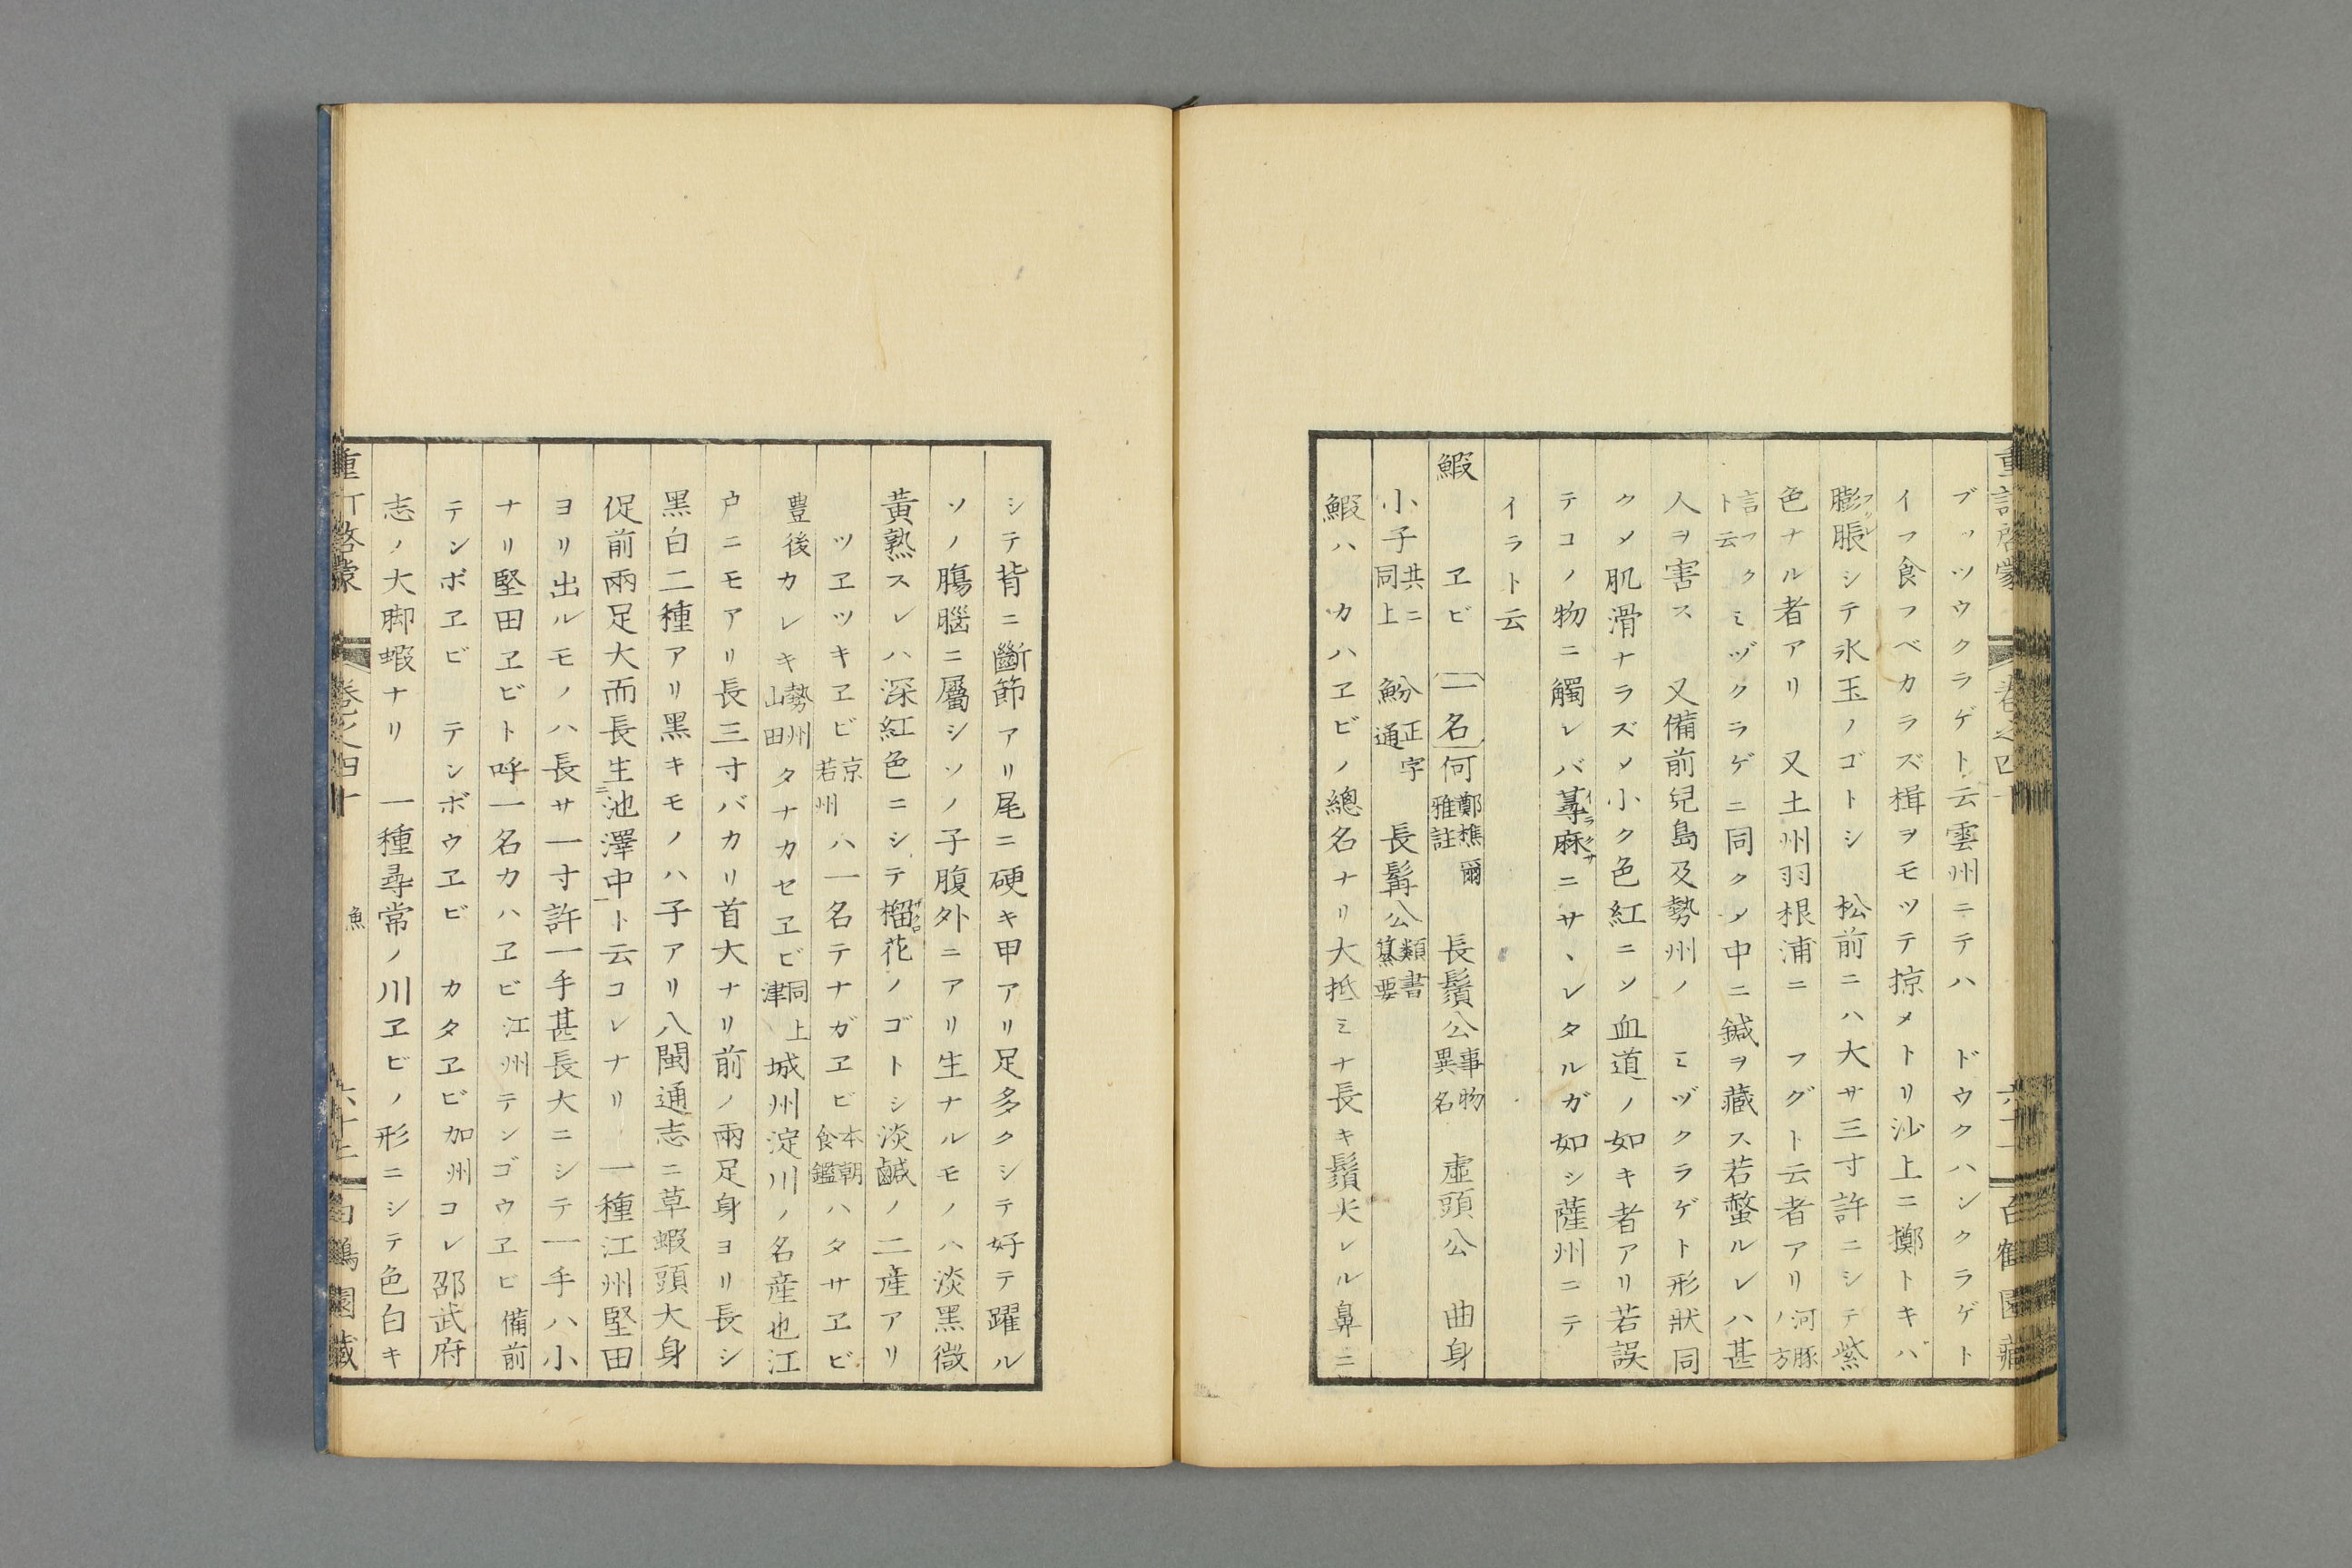 ブッツウクラゲト云雲州ニテハ　ドウクハンクラゲト
イフ食フベカラズ楫ヲモツテ掠メトリ沙上ニ擲トキハ
膨脹シテ氷玉ノゴトシ　松前ニハ大サ三寸許ニシテ紫
色ナル者アリ　又土州羽根浦ニ　フグト云者アリ河豚ノ方
言フクト云ミヅクラゲニ同クメ中ニ鍼ヲ藏ス若螫ルレハ甚
人ヲ害ス　又備前兒島及勢州ノ　ミヅクラゲト形狀同
クメ肌滑ナラズメ小ク色紅ニソ血道ノ如キ者アリ若誤
テコノ物ニ觸レバ蕁麻ニサヽレタルガ如シ薩州ニテ
イラト云
鰕　ヱビ　一名　何鄭樵爾雅註　長鬚公事物異名　虛頭公　曲身
小子共ニ同上　魵正字通　長髯公類書纂要
鰕ハカハヱビノ總名ナリ大抵ミナ長キ鬚尖レル鼻ニ
シテ背ニ斷節アリ尾ニ硬キ甲アリ足多クシテ好テ躍ル
ソノ膓腦ニ屬シソノ子腹外ニアリ生ナルモノハ淡黑微
黃熟スレハ深紅色ニシテ榴花ノゴトシ淡鹹ノ二產アリ
ツヱツキヱビ京若州ハ一名テナガヱビ本朝食鑑ハタサヱビ
豊後カレキ勢州山田タナカセヱビ同上津城州淀川ノ名産也江
戸ニモアリ長三寸バカリ首大ナリ前ノ兩足身ヨリ長シ
黑白二種アリ黑キモノハ子アリ八閩通志ニ草蝦頭大身
促前兩足大而長生池澤中ト云コレナリ　一種江州堅田
ヨリ出ルモノハ長サ一寸許一手甚長大ニシテ一手ハ小
ナリ堅田ヱビト呼一名カハヱビ江州テンゴウヱビ備前
テンボヱビ　テンボウヱビ　カタヱビ加州コレ邵武府
志ノ大脚蝦ナリ　一種尋常ノ川ヱビノ形ニシテ色白キ